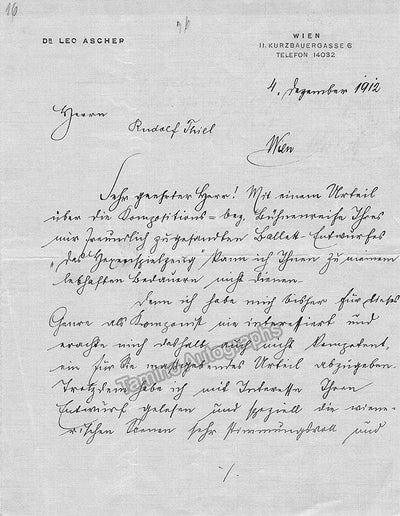 16
Dr. LEO ASCHER
WIEN
II. KURZBAUERGASSE 6
TELEFON 14032
4. Dezember 1912
Herrn
Rudolf Thiel
Wien
Sehr geehrter Herr! Mit einem Urteil
über die Kompositions= bez. Bühnenreife Ihres
mir freundlich zugesandten Ballett-Entwurfes
"das Hexenspielzeug" kann ich Ihnen zu meinem
lebhaften Bedauern nicht dienen.
Denn ich habe mich bisher für dieses
Genre als Komponist nie interessiert und
erachte mich deshalb auch nicht kompetent,
ein für Sie massgebendes Urteil abzugeben.
Trotzdem habe ich mit Interesse Ihren
Entwurf gelesen und speziell die wiene-
rischen Scenen sehr stimmungsvoll und
./.
Tamino Autographs